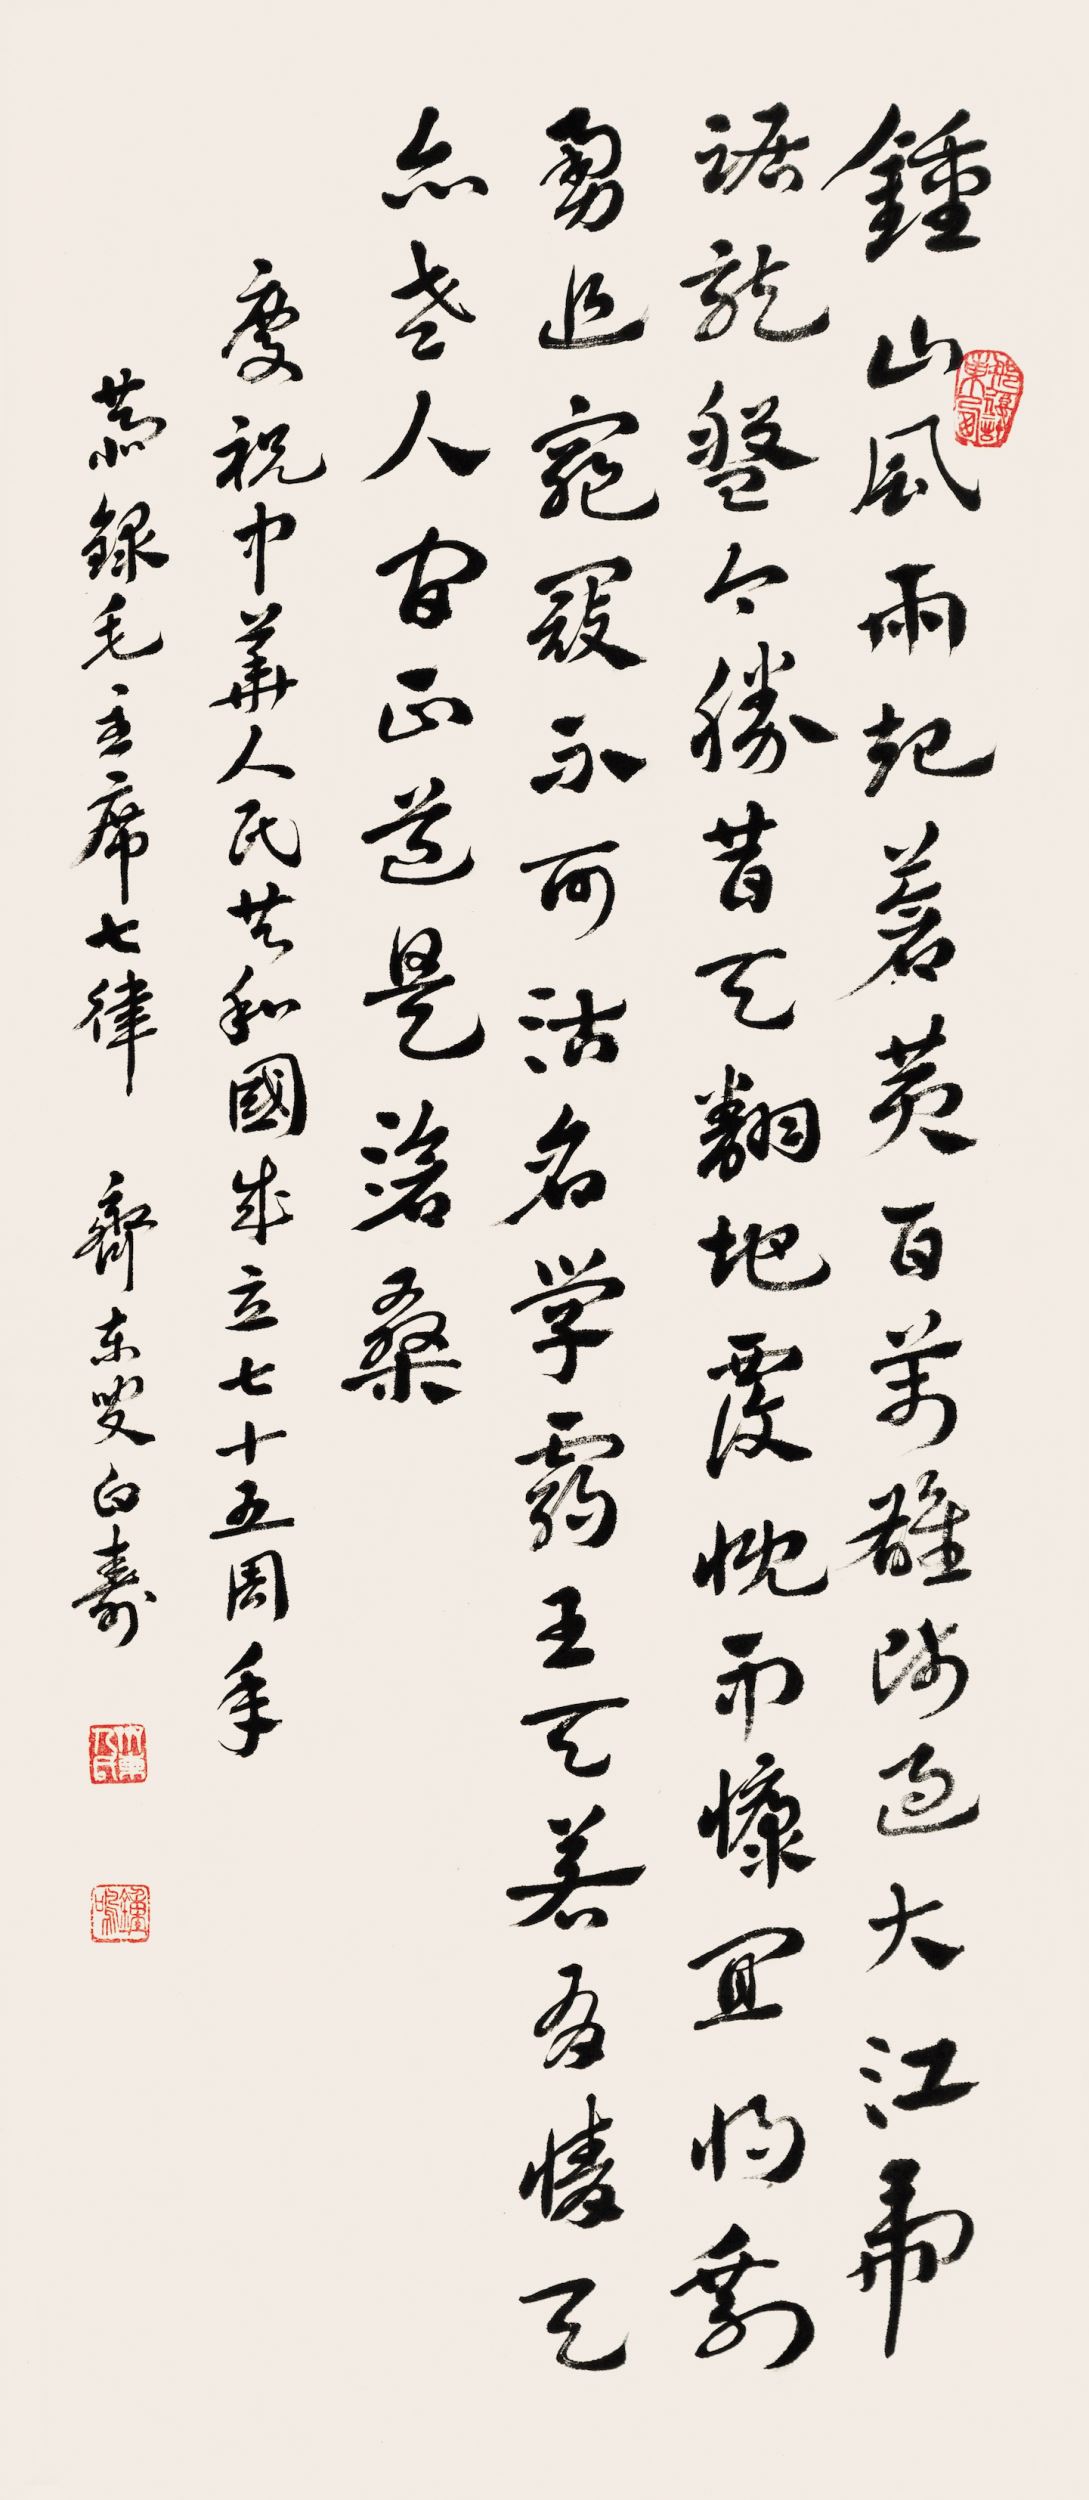 鍾山風雨起蒼黃百萬雄師過大江虎
踞龍盤今勝昔天翻地覆慨而慷宜將剩
勇追窮寇不可沽名学霸王天若有情天
亦老人間正道是滄桑
慶祝中華人民共和國成立七十五周年
恭錄毛主席七律 齊东叟白壽